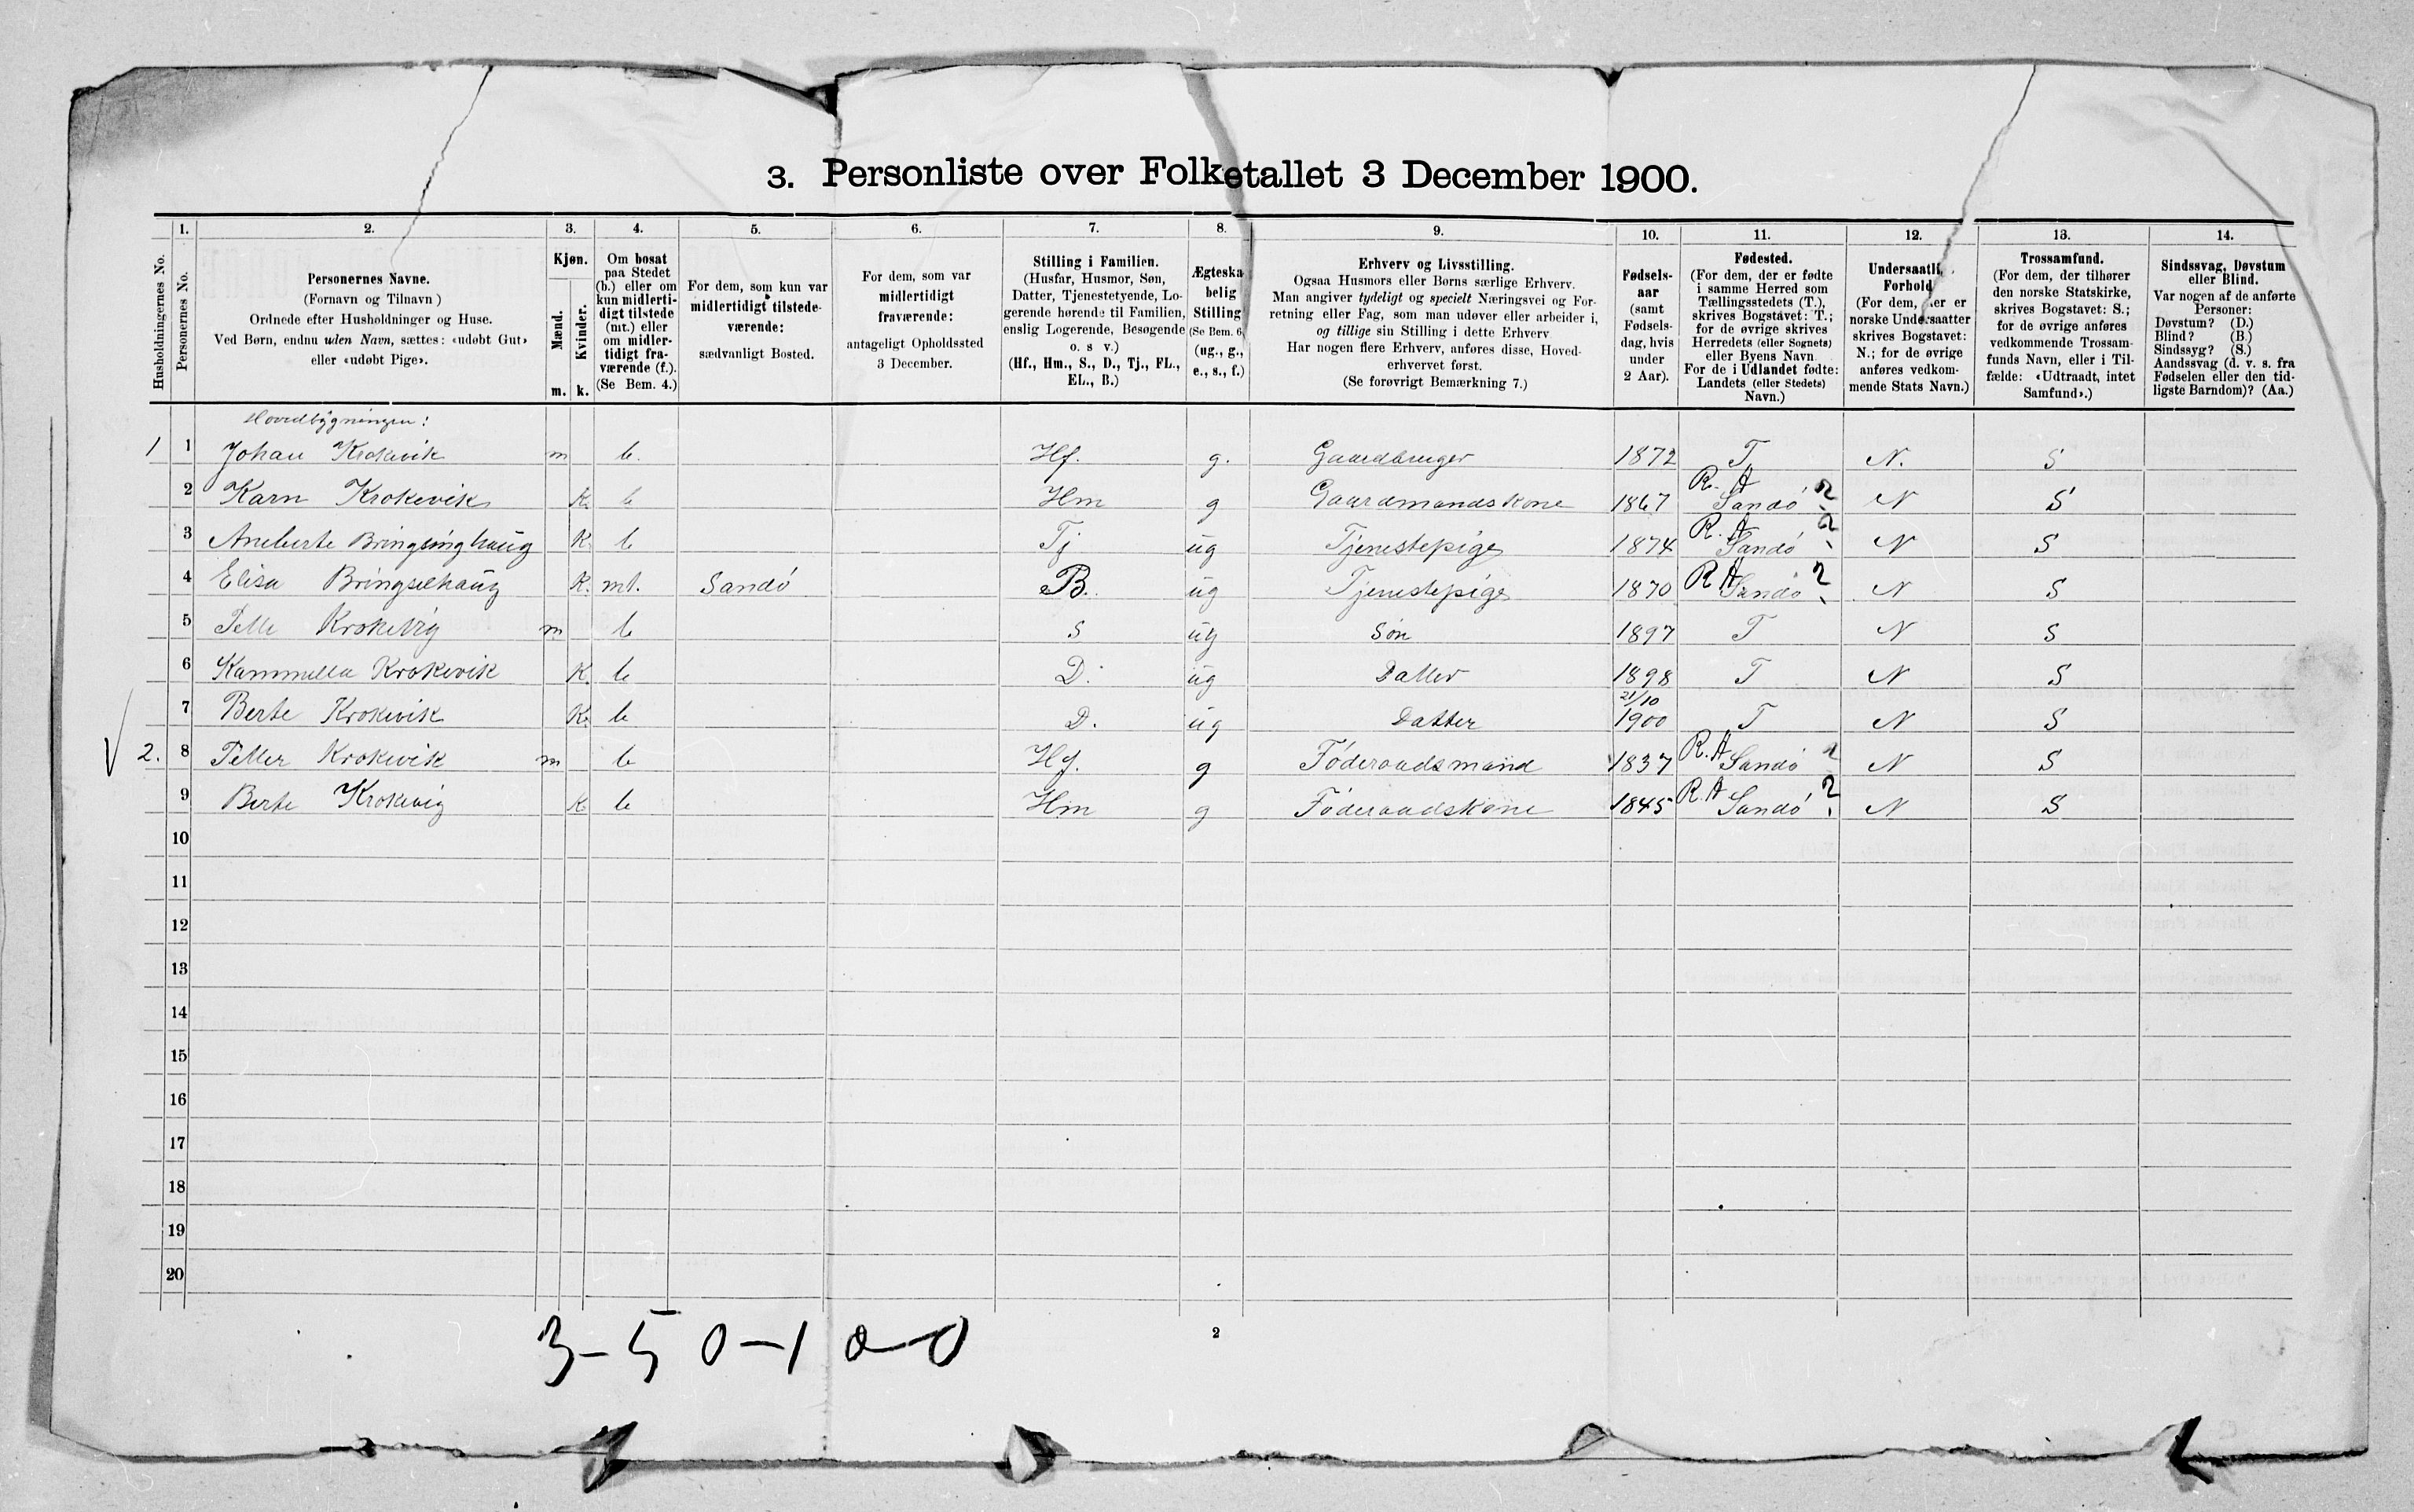 3. Personliste over Folketallet 3 December 1900.
1. 2. 3. 4. 5. 6. 7. 8. 9. 10. 11. 12. 13. 14.
Husholdningernes No.
Personernes No.
Personernes Navne.
(Fornavn og Tilnavn)
Ordnede efter Husholdninger og Huse.
Ved Børn, endnu uden Navn, sættes: «udøbt Gut»
eller «udøbt Pige».
Kjøn.
Mænd.
Kvinder.
m. k.
Om bosat
paa Stedet
(b.) eller om
kun midlerti-
digt tilstede
(mt.) eller
om midler-
tidigt fra-
værende (f.).
(Se Bem. 4.)
For dem, som kun var
midlertidigt tilstede-
værende:
sædvanligt Bosted.
For dem, som var
midlertidigt
fraværende:
antageligt Opholdssted
3 December.
Stilling i Familien.
(Husfar, Husmor, Søn,
Datter, Tjenestetyende, Lo-
gerende hørende til Familien,
enslig Logerende, Besøgende
o. s v.)
(Hf., Hm., S., D., Tj., FL.,
EL., B.)
Ægteska
belig
Stilling
(Se Bem. 6.
(ug., g.,
e., s., f.)
Erhverv og Livsstilling.
Ogsaa Husmors eller Børns særlige Erhverv.
Man angiver tydeligt og specielt Næringsvei og For-
retning eller Fag, som man udøver eller arbeider i,
og tillige sin Stilling i dette Erhverv
Har nogen flere Erhverv, anføres disse, Hoved-
erhvervet først.
(Se forøvrigt Bemærkning 7.)
Fødsels-
aar
(samt
Fødsels-
dag, hvis
under
2 Aar).
Fødested.
(For dem, der er fødte
i samme Herred som
Tællingsstedets (T.),
skrives Bogstavet: T.;
for de øvrige skrives
Herredets (eller Sognets)
eller Byens Navn
For de i Udlandet fødte:
Landets (eller Stedets)
Navn.)
Undersaatl.
Forhold
(For dem, der er
norske Undersaatter
skrives Bogstavet:
N.; for de øvrige
anføres vedkom-
mende Stats Navn.)
Trossamfund.
(For dem, der tilhører
den norske Statskirke,
skrives Bogstavet: S.;
for de øvrige anføres
vedkommende Trossam-
funds Navn, eller i Til-
fælde: «Udtraadt, intet
Samfund».)
Sindssvag, Døvstum
eller Blind.
Var nogen af de anførte
Personer:
Døvstum? (D.)
Blind? (B.)
Sindssyg? (S.)
Aandssvag (d. v. s. fra
Fødselen eller den tid-
ligste Barndom)? (Aa.)
Hovedbygningen:
1 1 Johan Krokevik m b. Hf. g. Gaardbruger 1872 T N. S
2 Karn Krokevik K. b Hm g Gaardmandskone 1867 R. A Sandö ? N S
3 Aneberte Bringsinghaug K. b Tj ug Tjenestepige 1874 R. A Sandö ? N S
4 Elisa Bringselhaug K. mt. Sandö B. ug Tjenestepige 1870 R A Sandö ? N S
5 Pette Krokevig m b S ug Søn 1897 T N S
6 Kammella Krokevik K. b D. ug Datter 1898 T N S
7 Berte Krokevik K. b D. ug Datter 21/10 1900 T N S
2. 8 Petter Krokevik m b Hf. g Föderaadsmand 1837 R. A Sandö ? N S
9 Berte Krokevig K b Hm g Föderaadskone 1845 R. A Sandö ? N S
10
11
12
13
14
15
16
17
18
19
20
3-5 0-1 0-0
2